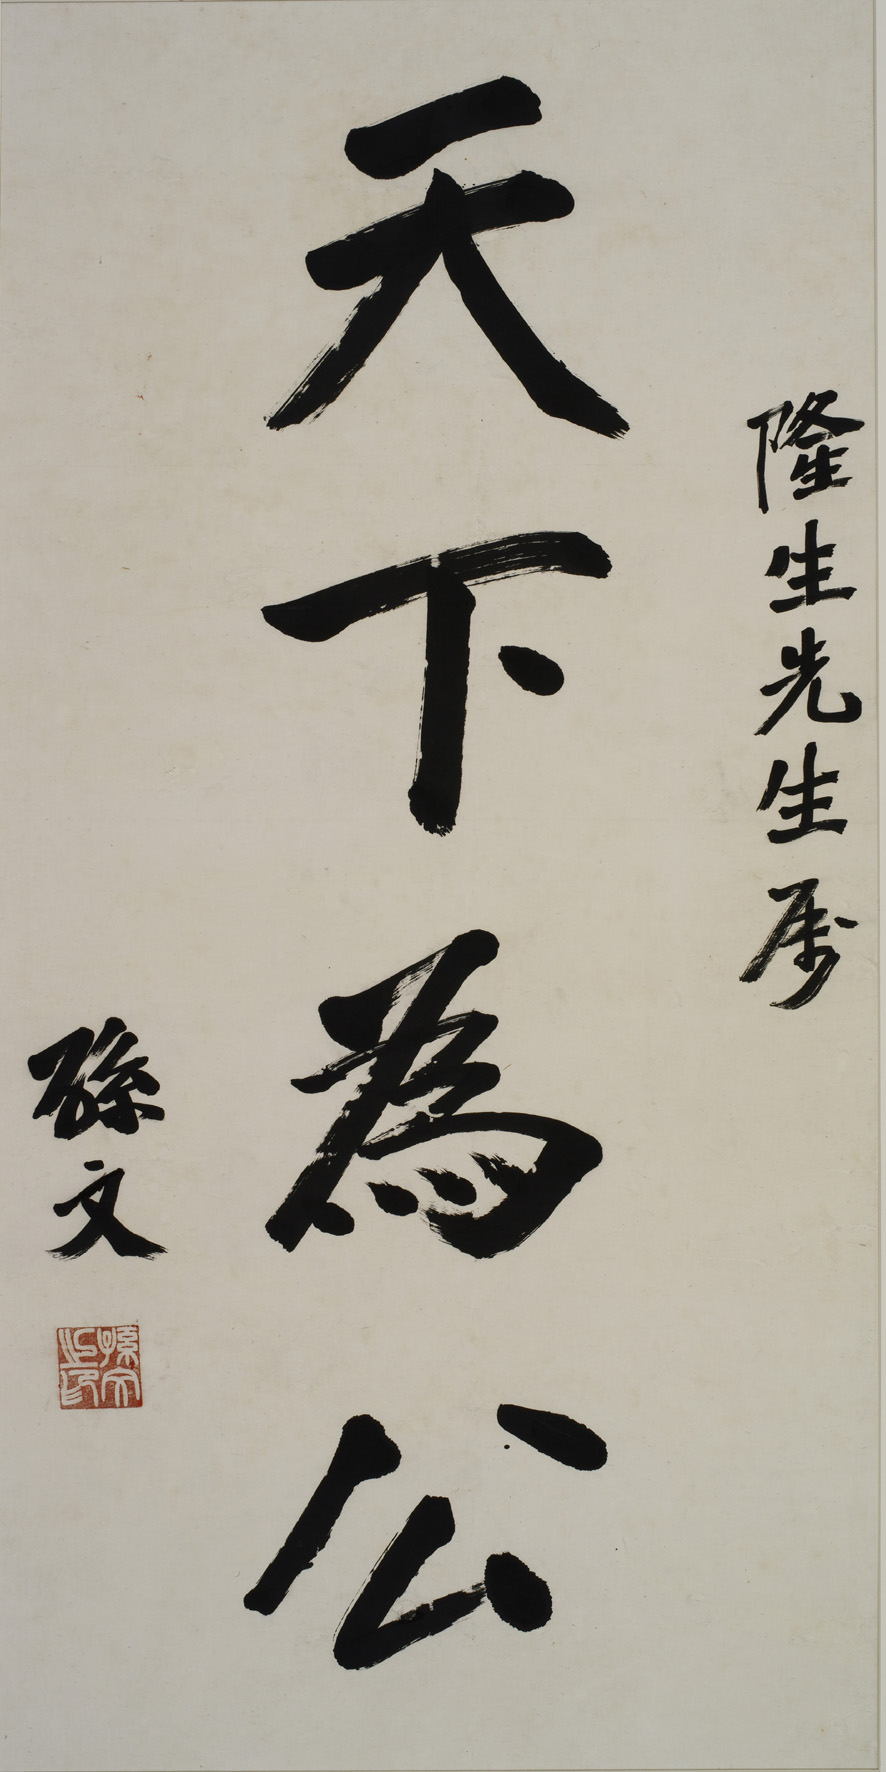 隆生先生屬
天下為公
孫文
孫文之印